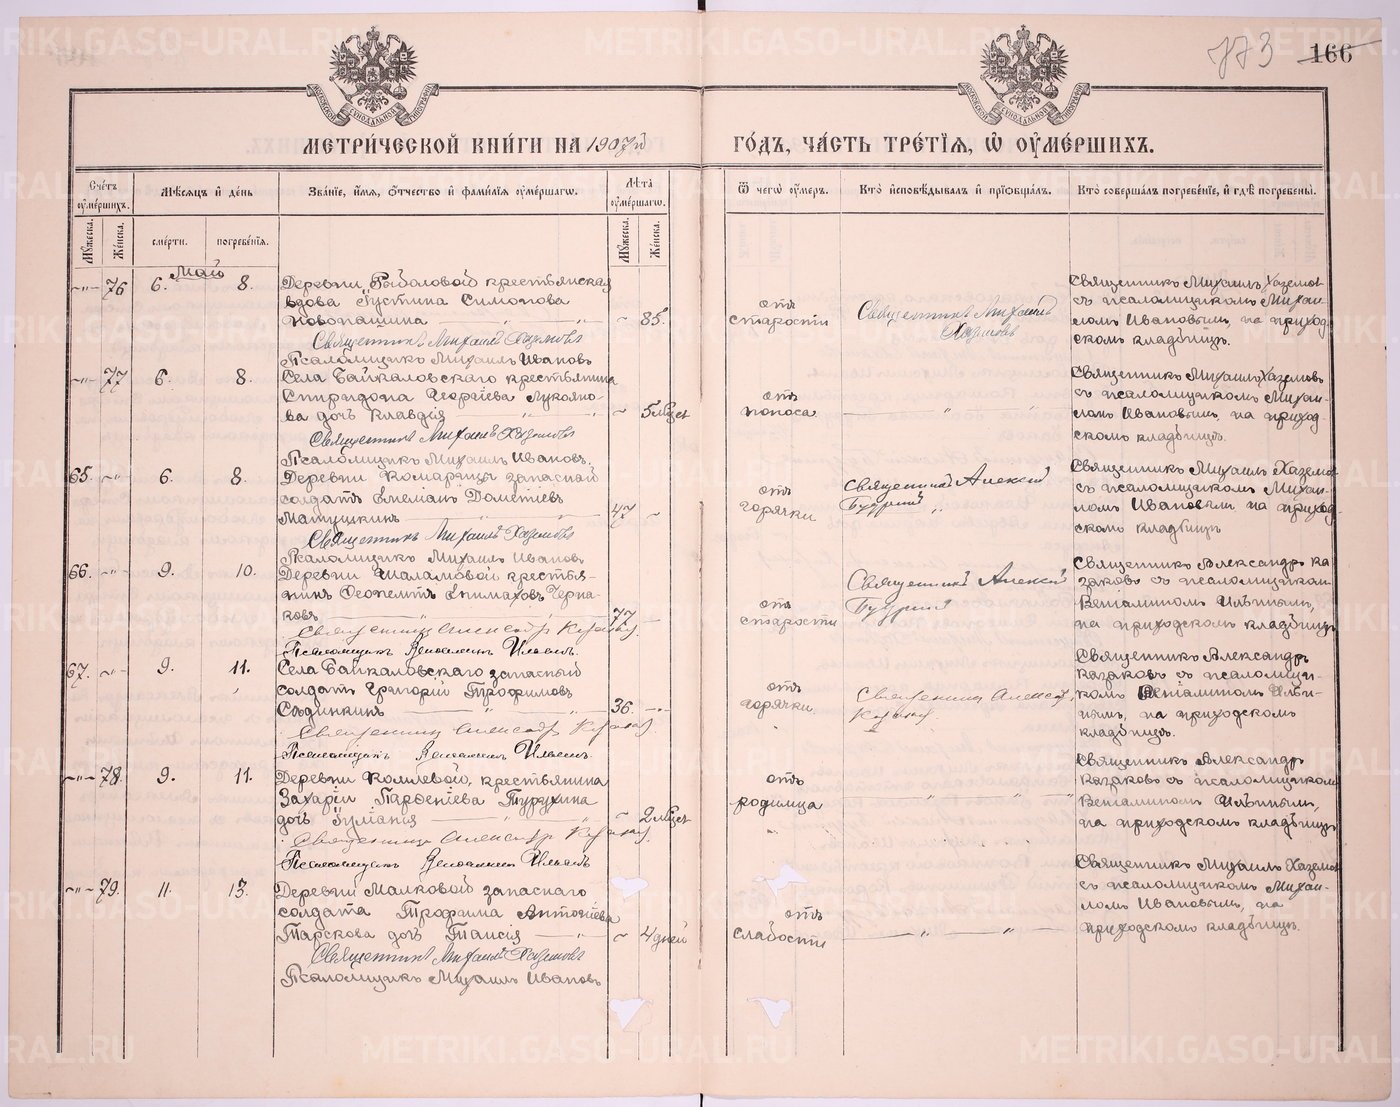 173 166
МЕТРИ́ЧЕСКОЙ КНИ́ГИ НА 1907й ГО́ДЪ, ЧА́СТЬ ТРЕ́ТІЯ, Ѿ ОУМЕ́РШИХЪ.
Счетъ оумершихъ.
Мѣсяцъ и день
Зва́ніе, и́мя, о́тчество и фами́лія оумершагѡ.
Лѣта оумершагѡ.
Ѿ чегѡ оумеръ.
Кто исповѣдывалъ и пріобщалъ.
Кто совершалъ погребеніе, и гдѣ погребены.
Мужеска.
Женска.
смерти.
погребенія.
Мужеска.
Женска.
Май
76 6. 8.
Деревни Рыбаловой крестьянская
вдова Іустина Симонова
Новопашина 85.
Священникъ Михаилъ Хаземовъ
Псаломщикъ Михаилъ Ивановъ
отъ
старости
Священникъ Михаилъ
Хаземовъ
Священникъ Михаилъ Хаземов
съ псаломщикомъ Михаи-
ломъ Ивановымъ, на приход-
скомъ кладбищѣ.
77 6. 8.
Села Байкаловскаго крестьянина
Спиридона Георгіева Лукояно-
ва дочь Клавдія 5 мѣсяц
Священникъ Михаилъ Хаземовъ
Псаломщикъ Михаилъ Ивановъ.
отъ
поноса
Священникъ Михаилъ Хаземовъ
съ псаломщикомъ Михаи-
ломъ Ивановымъ, на приход-
скомъ кладбищѣ.
65. 6. 8.
Деревни Комарицы запасный
солдатъ Дометіевъ
Матушкинъ 47
Священникъ Михаилъ Хаземовъ
Псаломщикъ Михаилъ Ивановъ.
отъ
горячки
Священникъ Алексій
Священникъ Михаилъ Хаземов
съ псаломщикомъ Михаи-
ломъ Ивановымъ на приход-
скомъ кладбищѣ
66. 9. 10.
Деревни Шаламовой крестья-
нинъ Феопемтъ Черпа-
ковъ 77
Священникъ Александръ Казаковъ.
Псаломщикъ Веніаминъ Ильинъ.
отъ
старости
Священникъ Алексій
Священникъ Александръ Ка
заковъ съ псаломщикомъ
Веніаминомъ Ильинымъ,
на приходскомъ кладбищѣ
67. 9. 11.
Села Байкаловскаго запасный
солдатъ Григорій Трофимовъ
Сединкинъ 36.
Священникъ Александръ Казаковъ.
Псаломщикъ Веніаминъ Ильинъ.
отъ
горячки
Священникъ
Священникъ Александръ
Казаковъ съ псаломщи-
комъ Веніаминомъ Ильи-
нымъ, на приходскомъ
кладбищѣ.
78. 9. 11.
Деревни Комлевой, крестьянина
Захаріи Парѳеніева Турухина
дочь Іуліанія 2 мѣсяц
Священникъ Александръ Казаковъ.
Псаломщикъ Веніаминъ Ильинъ
отъ
родимца
Священникъ Александръ
Казаковъ съ псаломщикомъ
Веніаминомъ Ильинымъ,
на приходскомъ кладбищѣ
79. 11. 13.
Деревни Малковой запаснаго
солдата Трофима Антоніева
Тарскова дочь Таисія 4 дней
Священникъ Михаилъ Хаземовъ
Псаломщикъ Михаилъ Ивановъ
отъ
слабости
Священникъ Михаилъ Хаземов
съ псаломщикомъ Михаи-
ломъ Ивановымъ, на
приходскомъ кладбищѣ.
METRIKI.GASO-URAL.RU